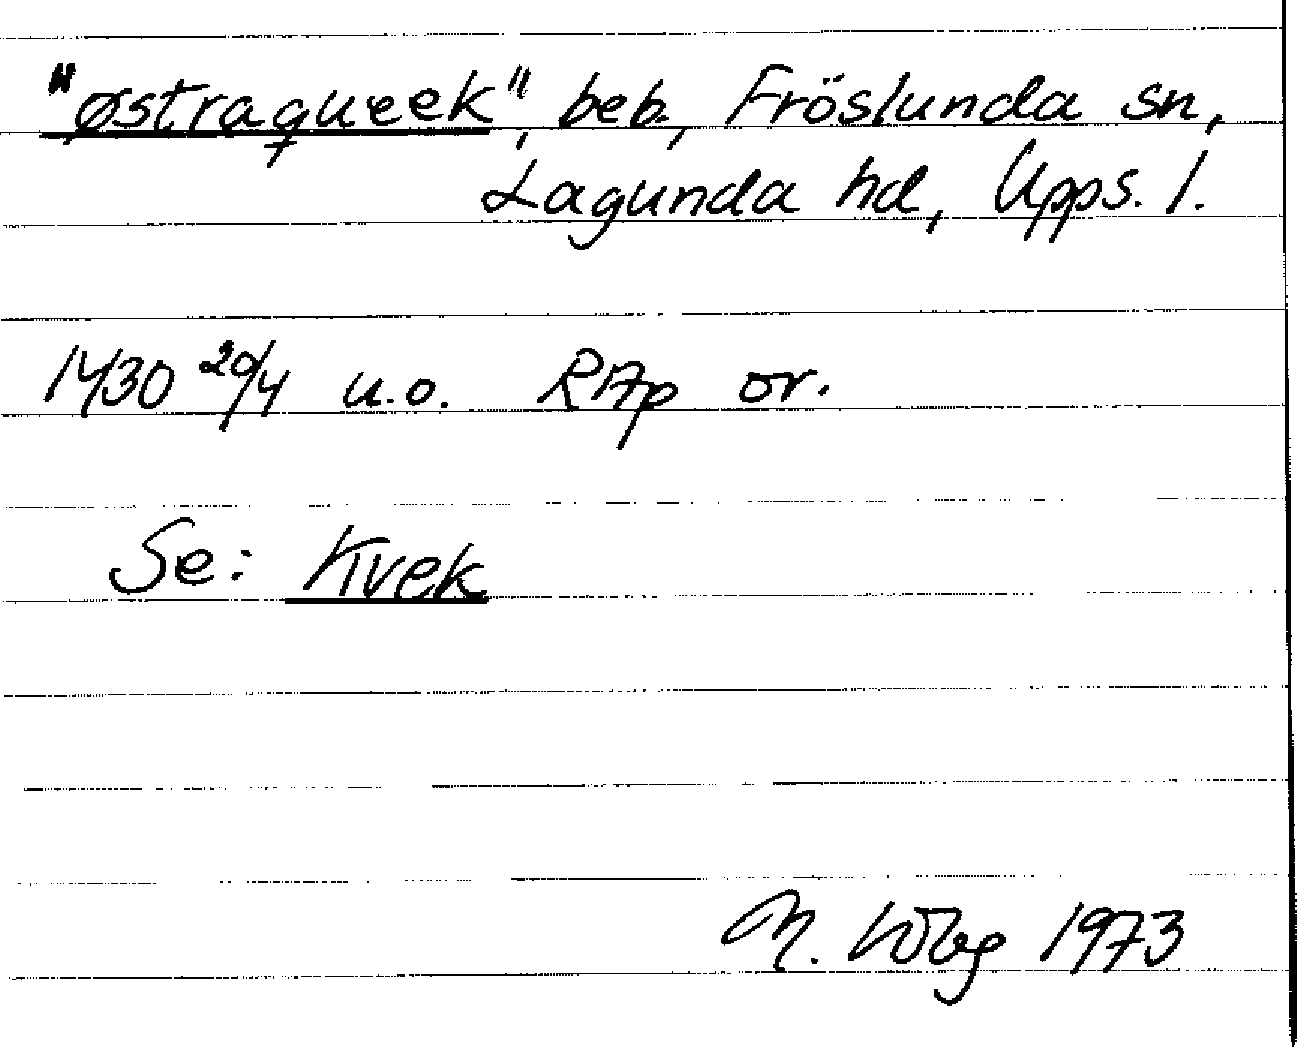 "østraqueek", beb., Fröslunda sn,
Lagunda hd, Upps. l.
1430 20/4 u.o. RAp or.
Se: Kvek
M. Wbg 1973